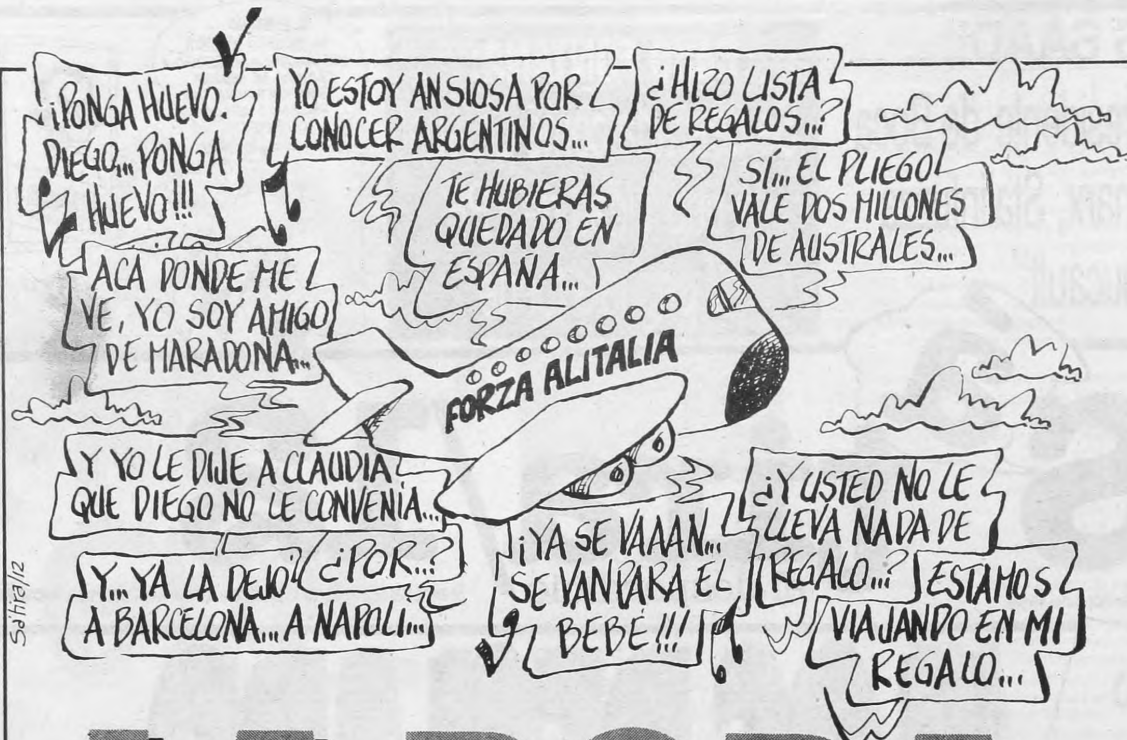 ¡PONGA HUEVO.
DIEGO... PONGA
HUEVO!!!
YO ESTOY ANSIOSA POR
CONOCER ARGENTINOS...
TE HUBIERAS
QUEDADO EN
ESPAÑA...
¿HIZO LISTA
DE REGALOS...?
SÍ... EL PLIEGO
VALE DOS MILLONES
DE AUSTRALES...
ACA DONDE ME
VE, YO SOY AMIGO
DE MARADONA...
FORZA ALITALIA
Y YO LE DIJE A CLAUDIA
QUE DIEGO NO LE CONVENÍA...
¿POR...?
Y... YA LA DEJO
A BARCELONA... A NAPOLI...
¡YA SE VAAAN...
SE VAN PARA EL
BEBÉ!!!
¿Y USTED NO LE
LLEVA NADA DE
REGALO...?
ESTAMOS
VIAJANDO EN MI
REGALO...
Sátira/12